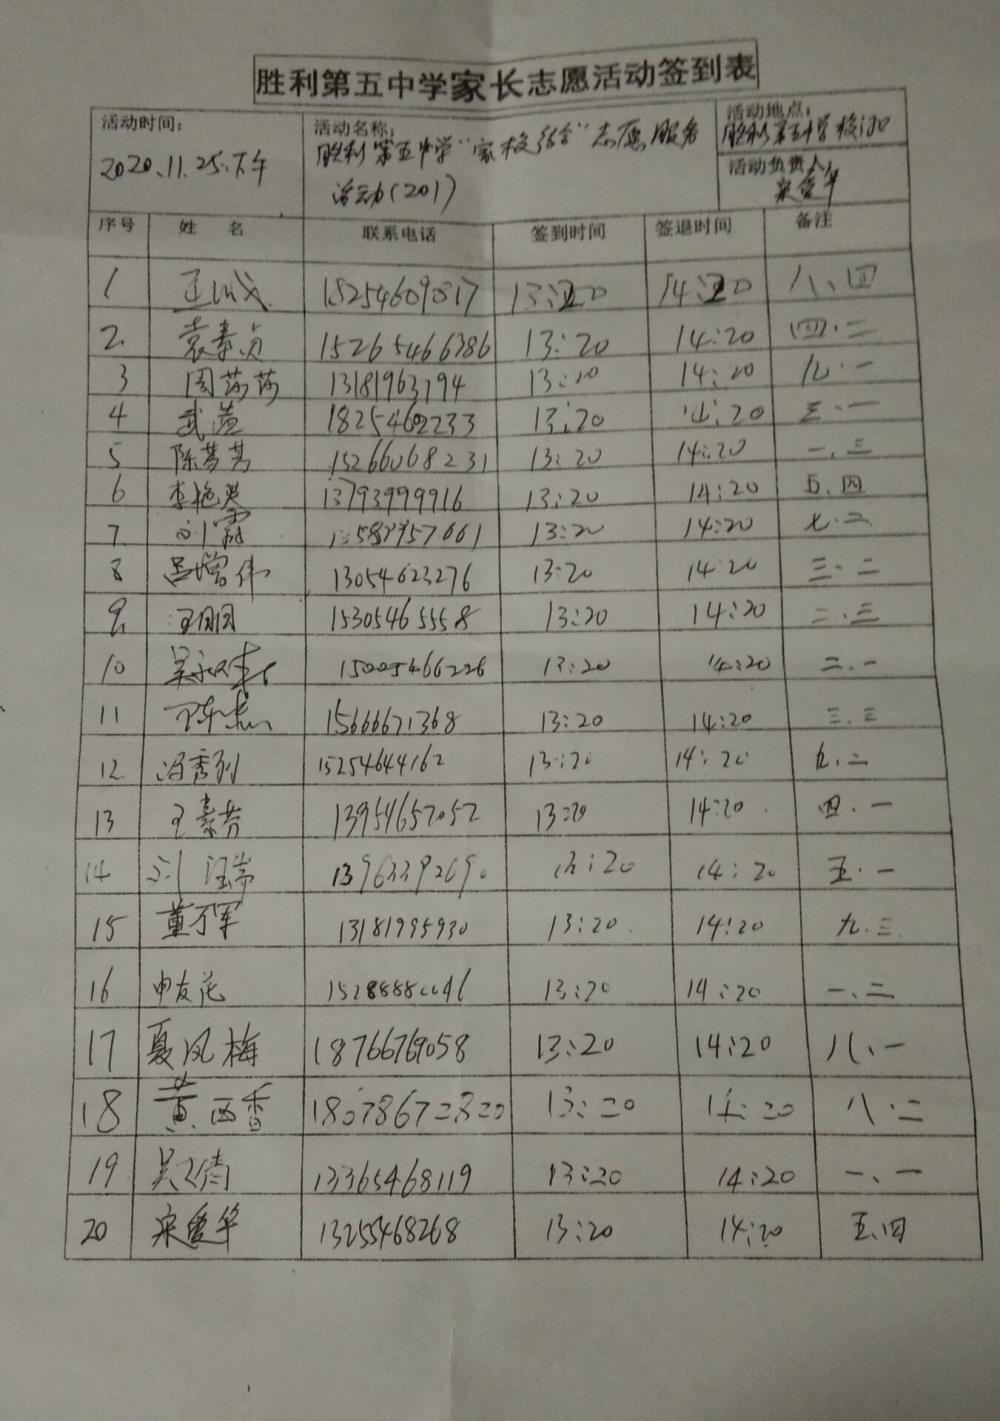 胜利第五中学家长志愿活动签到表
活动时间: 2020.11.25.下午
活动名称: 胜利第五中学"家校结合"志愿服务
活动(201)
活动地点: 胜利第五中学校门口
活动负责人: 宋爱华
序号 姓名 联系电话 签到时间 签退时间 备注
1 18254609817 13:20 14:20 八、四
2. 袁春贞 15265466386 13:20 14:20 四.二
3 周莎莎 13181963194 13:20 14:20 九.一
4 武英 18254602233 13:20 14:20 三.一
5 陈梦芳 15266068231 13:20 14:20 一.三
6 李艳英 13793999916 13:20 14:20 五.四
7. 刘霞 13:20 14:20 七.二
8 吕增伟 13054623276 13:20 14:20 三.二
9. 15305465558 13:20 14:20 二.三
10 15005466226 13:20 14:20 二.一
11 15666671368 13:20 14:20 三.三
12 冯秀列 15254644162 13:20 14:20 九.二
13 王素芳 13954657052 13:20 14:20 四.一
14 13963392690 13:20 14:20 五.一
15 董万军 13181995930 13:20 14:20 九.三
16 申友花 13:20 14:20 一.二
17 夏凤梅 18766769058 13:20 14:20 八.一
18 黄西香 13:20 14:20 八.二
19 吴文倩 13365468119 13:20 14:20 一.一
20 宋爱华 13255468268 13:20 14:20 五.四